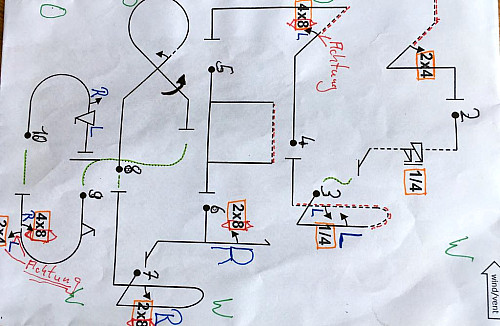 4x8
L
Achtung
2x4
2
1/4
5
4
3
L
1/4
L
R
L
10
8
9
6
2x8
R
7
2x8
R
4x8
R
L
2x4
Achtung
wind/vent